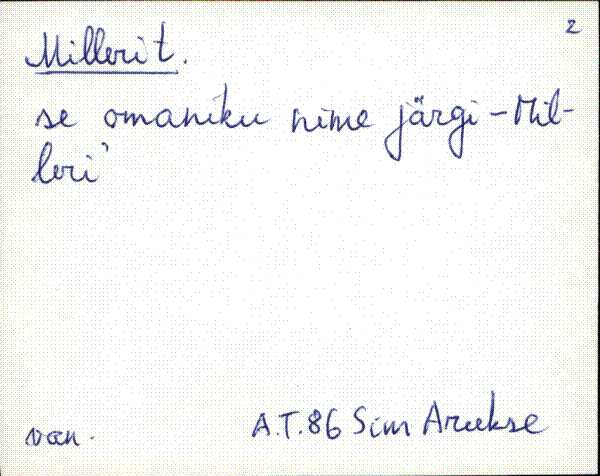 2
Millerit.
se omaniku nime järgi - Mil-
leri'
van.
A.T.86 Sim Arukse